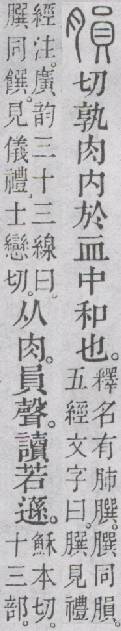 䐣
切孰肉内於血中和也。
釋名有肺𦠆。𦠆同䐣。
五經文字曰。𦠆見禮
經注。廣韵三十三線曰。
𦠆同饌。見儀禮。士戀切。
从肉。員聲。讀若遜。
穌本切。
十三部。